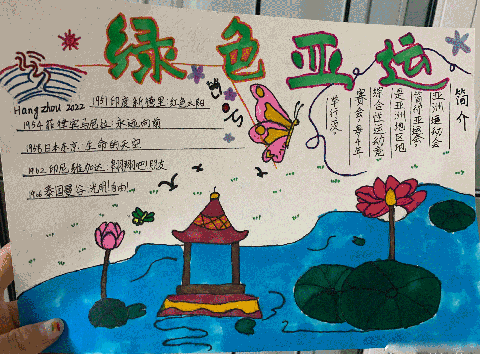 绿色亚运
Hangzhou 2022
1951印度新德里:红色太阳
1954菲律宾马尼拉:永远向前
1958日本东京:生命的火
1962印尼雅加达:
1966泰国曼谷:光明!自由!
简介
亚洲运动会
简称亚运会
是亚洲地区地
综合性运动竞
赛会,每4年
举行一次